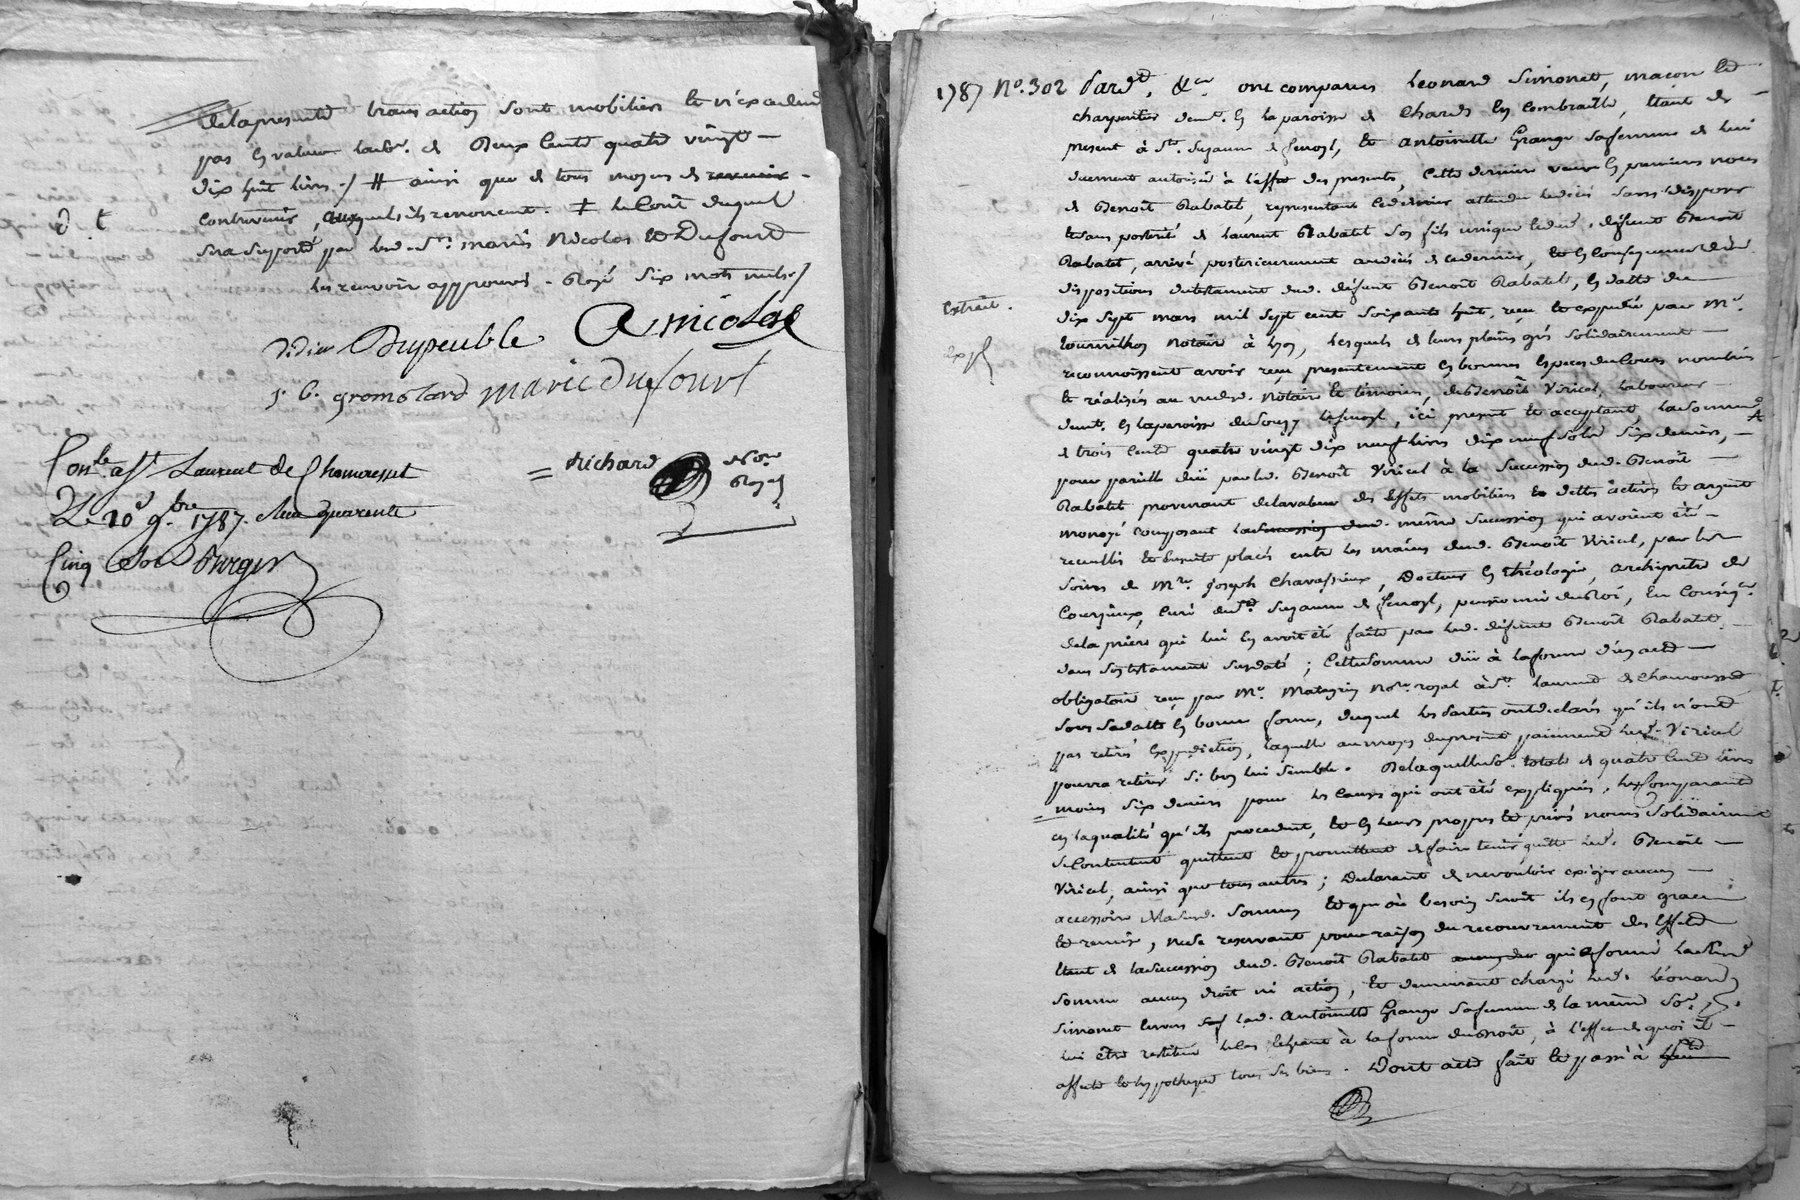 de la presente transaction sont mobiliers et n'excedent
pas en valeur lad. de deux cents quatre vingt
dix huit livres ./ # ainsi que de tous moyens de revenir
contrevenir, auxquels ils renoncent. ‡ le cout duquel
d. t
sera suporté par led. Sr. mariés Nicolas et Dufourd
les renvoir approuvés. Rayé six mots nuls ./
didier Dupeuble A nicolas
j. b. gromolard marie dufourt
= Richard Nore
Royal
Conle. a St Laurent de Chamousset
Le 20e 9.bre 1787. Reçu quarente
Cinq sols Berger
1787 No. 302 Pardt. &a. ont comparus Leonard Simonet, macon et
charpentier demt. en la paroisse de Chards en Combraille, étant de
present à Ste. Suzanne de fenoyl, et Antoinette Grange sa femme de lui
duement autorisée à l'effet des presentes, cette derniere veuve en premieres noces
de Benoît Rabatet, representant ce dernier attendu le décés sans disposer
et sans posterité de Laurent Rabatel son fils unique et dud. défunt Benoît
Rabatet, arrivé posterieurement au décés de ce dernier, et en consequence des
dispositions du testament dud. défunt Benoît Rabatet, en datte du
Extrait.
dix sept mars mil sept cent soixante huit, reçu et expedié par Me.
tournilhon notaire à Lyon, lesquels de leurs pleins grés solidairement
Exp
reconnoissent avoir reçu presentement en bonnes especes du cours nombrées
et réalisées au vu desd. notaire et temoins, de Benoît Viricel, laboureur
demt. en la paroisse de Souzy L'argentiere, ici present et acceptant, la somme
de trois cents quatre vingt dix neuf livres dix neuf sols six deniers,
pour pareille düe par led. Benoît Viricel à la succession dud. Benoît
Rabatet provenant de la valeur des effets mobiliers et dettes actives et argent
monoyé composant la succession dud. même succession qui avoient été
recueillis et ensuite placés entre les mains dud. Benoît Viricel, par les
soins de Mre. Joseph Chavassieux, Docteur en théologie, archiprêtre de
Courzieux, curé de Ste. Suzanne de fenoyl, pensionné du Roi, en conséq.ce
de la priere qui lui en avoit été faite par led. défunt Benoît Rabatet
dans son testament susdaté ; cette somme düe à la forme d'un acte
obligatoire reçu par Me. Matagrin nore. royal à St. Laurent de Chamousset
sous sa datte en bonne forme, duquel les parties ont declarés qu'ils n'ont
pas retiré expedition, laquelle au moyen du present paiement led. Viricel
pourra retirer si bon lui semble. De laquelle se. totale de quatre cents livres
moins six deniers pour les causes qui ont été expliquées, les comparants
en la qualité qu'ils procedent, et en leurs propres et privés noms solidairement
se contentent quittent et promettent de faire tenir quitte led. Benoît
Viricel, ainsi que tous autres ; declarant de ne vouloir exiger aucun
accessoire de lad. somme et qu'où besoin seroit ils en font grace
et remise, ne se reservant pour raison du recouvrement des effets
étant de la succession dud. Benoît Rabatet qui a formé lad.
somme aucun droit ni action, et demeurant chargé led. Léonard
Simonet envers lad. Antoinette Grange sa femme de la même se.
lui être restituée le cas echeant à la forme du droit, à l'effet de quoi il
affecte et hypotheque tous ses biens. Dont acte fait et passé à